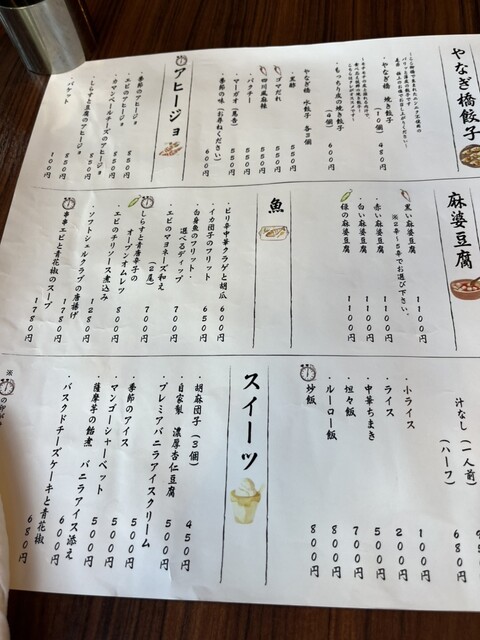 やなぎ橋餃子
・やなぎ橋 焼き餃子
(10個) 480円
・もっちり皮の焼き餃子
(4個) 600円
やなぎ橋 水餃子 各3個
・黒酢 550円
・ゴマだれ 550円
・四川風麻辣 550円
・パクチー 550円
・マーガオ(馬告) 550円
・季節の味(お尋ねください) 600円
アヒージョ
・季節のアヒージョ
・エビのアヒージョ 850円
・カマンベールチーズのアヒージョ 850円
・しらすと豆腐のアヒージョ 850円
・バケット 100円
麻婆豆腐
※2辛~5辛でお選び下さい。
・黒い麻婆豆腐 1100円
・赤い麻婆豆腐 1100円
・白い麻婆豆腐 1100円
・緑の麻婆豆腐 1100円
魚
・ピリ辛中華クラゲと胡瓜 600円
・イカ団子のフリット 650円
・白身魚のフリット・
選べるディップ 700円
・エビのマヨネーズ和え 700円
・しらすと青唐辛子の
オーブンオムレツ 700円
・エビのチリソース煮込み (2尾)
・ソフトシェルクラブの唐揚げ 1280円
・串串エビと青花椒のスープ 1780円
1780円
汁なし(一人前)
(ハーフ) 680円
・小ライス 100円
・ライス 200円
・中華ちまき 500円
・坦々飯 700円
・ルーロー飯 800円
・炒飯 800円
スイーツ
・胡麻団子(3個) 450円
・自家製 濃厚杏仁豆腐 500円
・プレミアバニラアイスクリーム 500円
・季節のアイス 500円
・マンゴーシャーベット 500円
・薩摩芋の飴煮 バニラアイス添え 600円
・バスクドチーズケーキと青花椒 680円
※